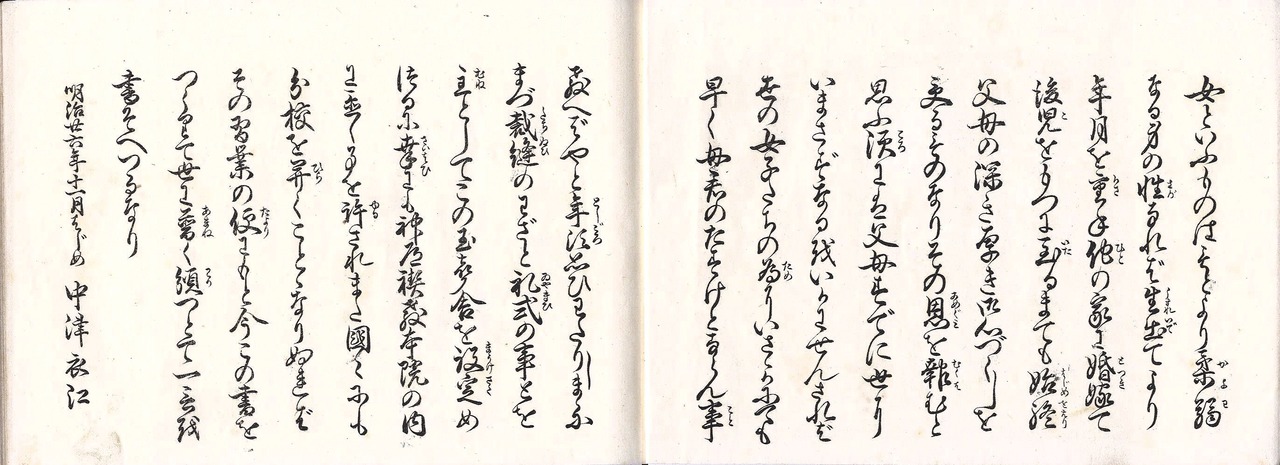 女といふものはもとより柔弱
なる身の性なれば生出てより
年月を重ね他の家に婚嫁て
後児をもつに至るまでも始終
父母の深き厚き御心づくしを
受るものなりその恩を報むと
思ふ頃には父母すでに世に
いまさずなる哉いかにせんされば
世の女子たちの為にいさゝかにても
早く母君のたすけとならん事
教へばやと年頃思ひわたりしまゝに
まづ裁縫のわざと礼式の事とを
主としてこの玉衣舎を設定め
つるに幸にも神道禊教本院の内
に置くことを許されまた国々にも
分校を開くことゝなりぬれば
その習業の便にもと今この書を
つくりて世に普く頒つとて一言を
書そへつるなり
明治廿六年十一月はじめ 中津衣江